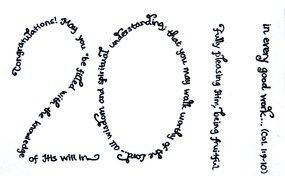 Congratulations! May you "be filled with the knowledge
of His will in
all wisdom and spiritual understanding, that you may walk worthy of the Lord...
Fully pleasing Him, being fruitful
in every good work... (Col 1:9-10)